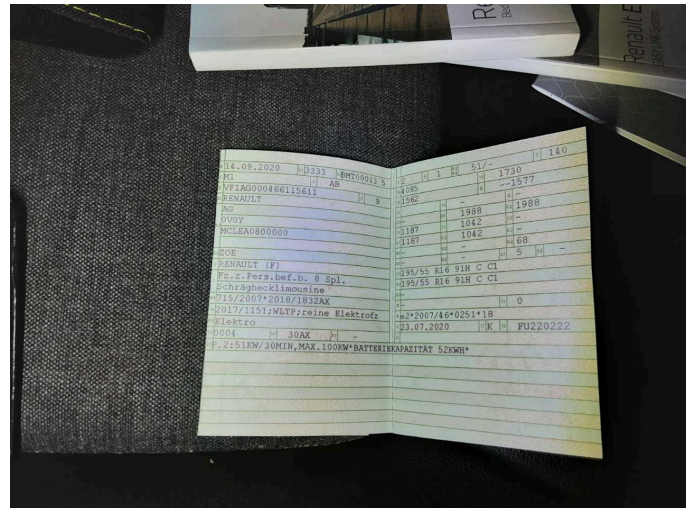 Re
Bed
Renault E
EASY LINK System
14.09.2020 3333 BMT00013 5
M1 AB
VF1AG000466115611 9
RENAULT
AG
0V0Y
MCLEA0800000
ZOE
RENAULT (F)
Fz.z.Pers.bef.b. 8 Spl.
Schräghecklimousine
715/2007*2018/1832AX
2017/1151;WLTP;reine Elektrofz
Elektro
0004 30AX -
P.2:51KW/30MIN,MAX.100KW*BATTERIEKAPAZITÄT 52KWH*
2 1 51/- 140
4085 1730
1562 --1577
- - -
- 1988 1988
1187 1042 -
1187 1042 -
- - 68
- - 5 -
195/55 R16 91H C C1
195/55 R16 91H C C1
-
- 0
e2*2007/46*0251*18
23.07.2020 K FU220222